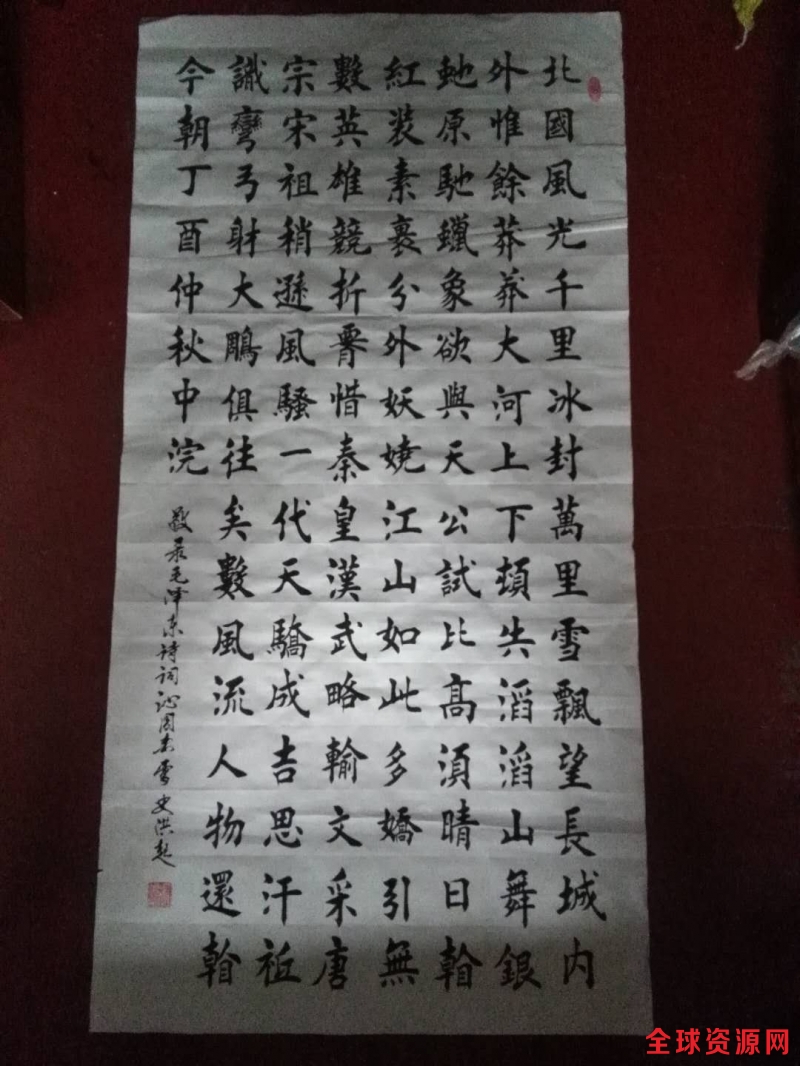 北國風光千里冰封萬里雪飄望長城内
外惟餘莽莽大河上下頓失滔滔山舞銀
虵原馳蠟象欲與天公試比高須晴日看
紅裝素裹分外妖嬈江山如此多嬌引無
數英雄競折腰惜秦皇漢武略輸文采唐
宗宋祖稍遜風騷一代天驕成吉思汗祗
識彎弓射大鵰俱往矣數風流人物還看
今朝丁酉仲秋中浣
敬录毛泽东诗词沁园春雪史洪起
全球资源网